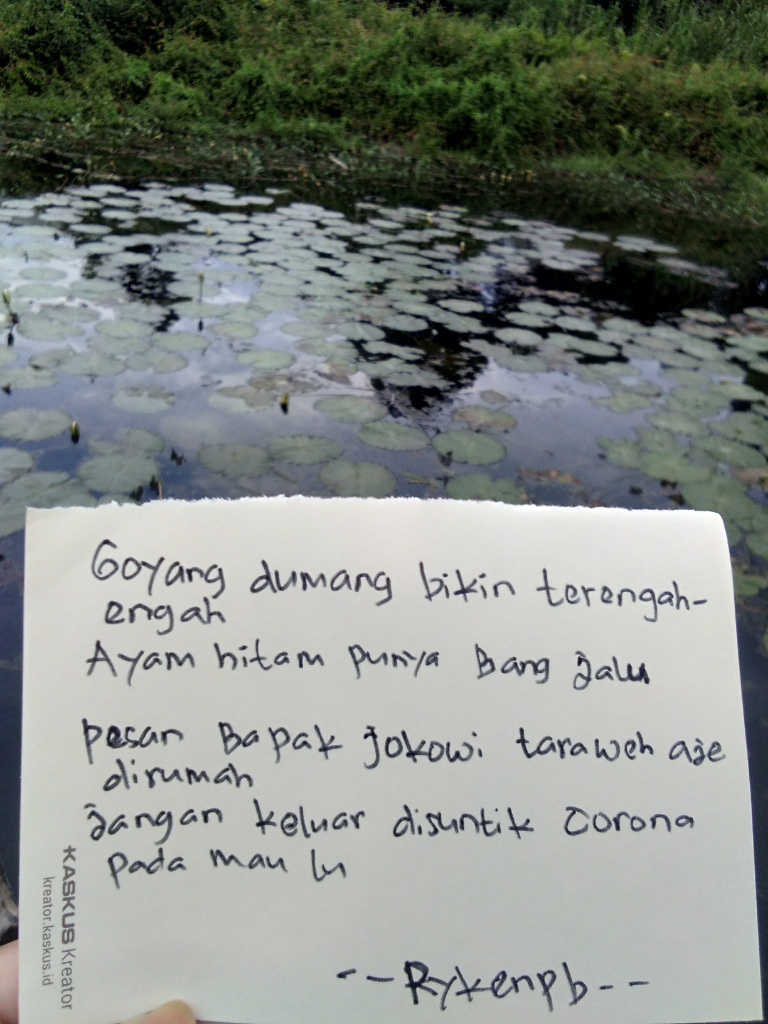 Goyang dumang bikin terengah-
engah
Ayam hitam punya Bang Jalu
Pesan Bapak Jokowi taraweh aje
dirumah
Jangan keluar disuntik Corona
pada mau lu
--Rykenpb--
KASKUS Kreator
kreator.kaskus.id